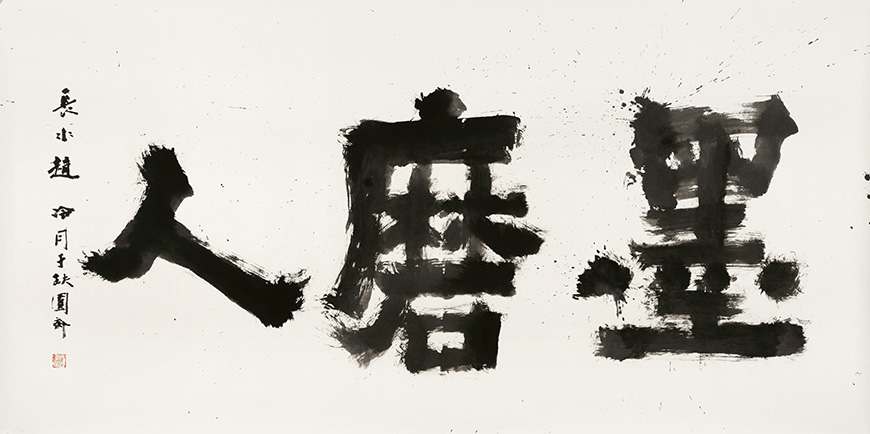 墨磨人
長水趙冷月于缺圓齋